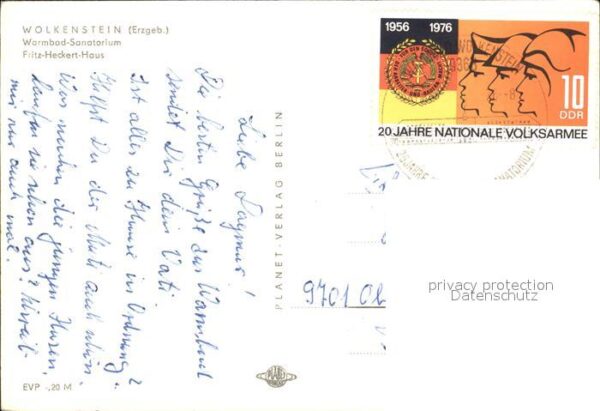 WOLKENSTEIN (Erzgeb.)
Warmbad-Sanatorium
Fritz-Heckert-Haus
Liebe Dagmar!
Die besten Grüße aus Warmbad
sendet Dir dein Vati.
Ist alles zu Hause in Ordnung?
Hilfst Du der Mutti auch schön?
Was machen die jungen Hasen,
laufen sie schon aus?
mir nur auch mal.
PLANET-VERLAG BERLIN
EVP -,20 M
1956 1976
10
DDR
20 JAHRE NATIONALE VOLKSARMEE
WOLKENSTEIN
9701
privacy protection
Datenschutz